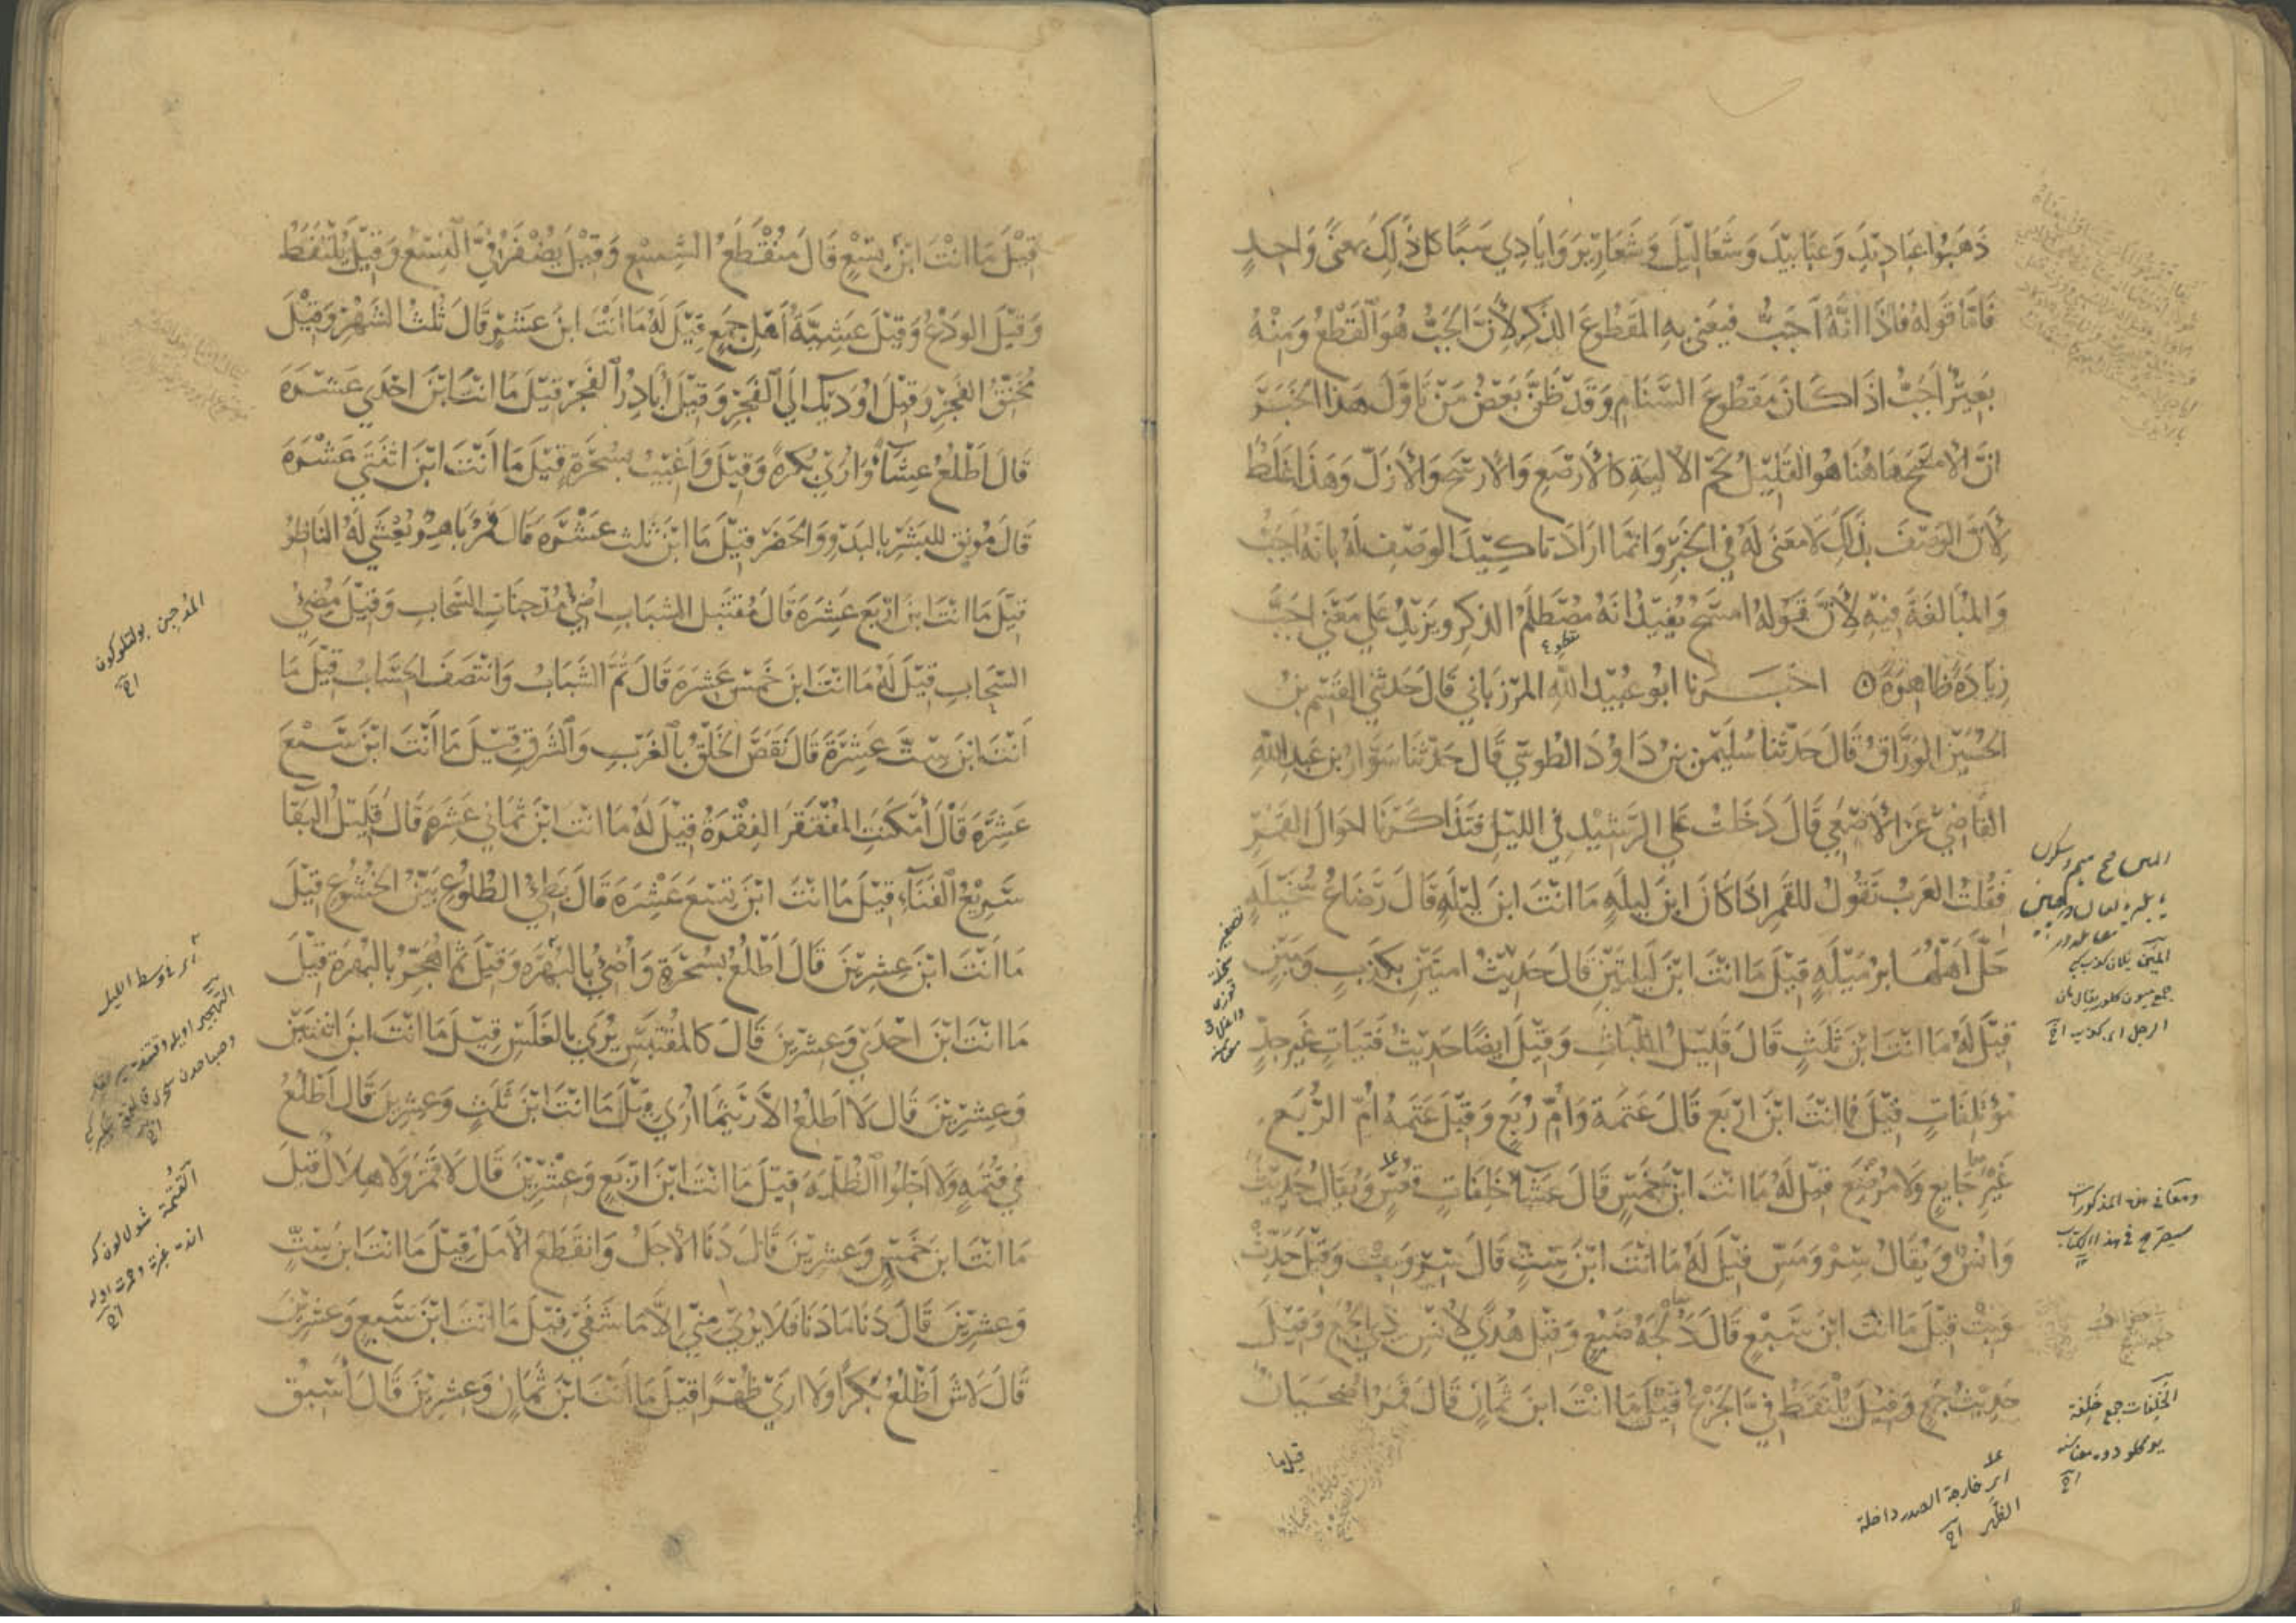 ذَهَبُوا عَبَادِيدَ وَعَبَابِيدَ وَشَعَالِيلَ وَشَعَارِيرَ وَايَادِي سَبَا كل ذَلِكَ بمعنًى وَاحِدٍ
فَامَّا قَوله فاذَا انَّهُ اَجَبُّ فيَعنى به المقطُوعَ الذكر لأنَّ الجَبَّ هُوَ القَطْعُ وَمِنْهُ
بَعِيرٌ اَجَبُّ اذَا كَانَ مَقْطُوعَ السَّنَامِ وَقَدْ ظَنَّ بَعْضُ مَنْ تَاَوَّلَ هَذَا الخَبَرَ
انَّ الامسَحَ هَاهُنَا هو القَلِيلُ لحم الاليةِ كالأرْصَعِ وَالارسَحِ وَالأزَلّ وَهَذا غَلَطٌ
لأنَّ الوَصْفَ بذَلِكَ لا مَعْنَى لَهُ فِي الخَبَرِ وَانّمَا ارَادَ تاكِيدَ الوَصْفِ لَهُ بانهُ اجَبُّ
وَالمُبَالَغَةَ فِيهِ لأنَّ قَوْلَهُ امسَح يُفيدُ انهُ مُصْطَلَمُ الذكرِ ويَزيدُ عَلى مَعْنَى اَجَبَّ
زيَادَةً ظَاهِرَةً ۞ اخبَـــرنا ابُو عُبَيد اللَّهِ المرزبَاني قَالَ حَدثَني القسِم بن
الحُسَيْنِ الوَرَّاقُ قَالَ حَدّثَنا سُلَيْمٰن بن دَاوُدَ الطُوسِي قَالَ حَدّثَنا سَوَّارُ بن عَبدِ اللهِ
القَاضِي عَنِ الأصْمَعِي قَالَ دَخَلتُ عَلَى الرَشِيْدِ فِي الليْلِ فتَذَاكَرْنَا احْوَالَ القَمَرِ
فَقُلْتُ العَرَبُ تَقُولُ للقَمَرِ اذَا كَانَ ابنَ لَيلَهٍ مَا انْتَ ابنَ لَيْلَهٍ قَالَ رَضَاعُ سُخَيْلَهٍ
حَلَّ اَهْلُهَا برُمَيْلَهٍ قيْلَ مَا انْتَ ابْنَ لَيلَتَيْنِ قَالَ حَدِيْثُ امتَيْنِ بكَذِبٍ وَمَيْنٍ
قيْلَ لَهُ مَا انْتَ ابْنَ ثَلثٍ قَالَ قَلِيْلُ اللَبَاثِ وَقيْلَ ايضًا حَدِيثُ فَتَيَاتٍ غَيرِ جدّ
مُؤتَلِفَاتٍ قيْلَ فما انْتَ ابْنَ ارْبَعٍ قَالَ عَتَمَةُ وَامُّ رُبَعٍ وَقيْلَ عَتَمَهُ امّ الرُبَعِ
غَيْرِ جَايعٍ وَلا مُرْضَعٍ قيلَ لَهُ مَا انْتَ ابْنَ خَمْسٍ قَالَ عَشَاءُ خَلِفَاتٍ قُعْسٍ وَيُقَالُ حَدِيثُ
وَانُسْ وَيُقَالُ سِرْ وَمَسِّ قيْلَ لَهُ مَا انْتَ ابْنَ سِتٍّ قَالَ سِرْ وَبِتْ وَقيْلَ حَدِّثْ
وَبِتْ قيْلَ مَا انْتَ ابْنَ سَبْعٍ قَالَ دُلْجَةُ ضَبُعٍ وَقيْلَ هُدًى لأنسٍ ذِي جَمْعٍ وَقيْلَ
حَدِيْثُ جَمْعٍ وَقيْلَ يُلْتَقَطُ فِيَّ الجَزْعُ قيْلَ مَا انْتَ ابنَ ثمَانٍ قَالَ قَمَرٌ اضْحَيَانٌ
قيل ما
مقطوع
تصغير سخلة
ومعانى هذه المذكورات
سيصرح فى هذا الكتاب
الخلفات جمع خلفة
اى خارجة الصدر داخلة
الظهر
قيْلَ مَا انْتَ ابْنَ تِسْعٍ قَالَ مُنْقَطِعُ الشِسْعِ وَقيْلَ يُضْفَرُ فِيَّ النِسْعُ وَقيْلَ يُلْتَقَطُ
وَقيْلَ الودْعُ وَقيْلَ عَشِيَّةُ اَهْلِ جَمعٍ قيْلَ لَهُ مَا انْتَ ابنَ عَشْرٍ قَالَ ثُلثُ الشَهْرِ وَقيْلَ
مُخَنِّقُ الفَجرِ وَقيْلَ اُودِّيكَ اِلَى الفَجْرِ وَقيْلَ اُبَادِرُ الفَجرَ قيْلَ مَا انْتَ ابْنَ احْدَى عَشْرَةَ
قَالَ اَطْلُعُ عِشَاءً وَاُرَى بُكرَةً وَقيْلَ وَاَغيْبُ بسُحْرَةٍ قيْلَ مَا اَنْتَ ابْنَ اثنَتَي عَشْرَةَ
قَالَ مُونِقٌ للبَشَرِ بالبَدْوِ وَالحَضَرِ قيْلَ مَا ابْنَ ثلث عَشْرَةَ قَالَ قَمَرٌ بَاهِرٌ يُعْشَى لَهُ النَاظِرُ
قيْلَ مَا انْتَ ابنَ ارْبَعَ عَشْرَةَ قَالَ مُقْتَبَلُ الشبَابِ اُضِيْ مُدْجِنَاتِ السَّحَابِ وَقيْلَ مُضِئُ
السَّحابِ قيْلَ لَهُ مَا انْتَ ابنَ خَمْسَ عَشرَةَ قَالَ تَمَّ الشَبَابُ وَانْتَصَفَ الحِسَابُ قيْلَ مَا
اَنْتَ ابنَ سِتَّ عَشْرَةَ قَالَ نَقَصَ الخَلْقُ بالغَربِ وَالشَرقِ قيْلَ مَا اَنْتَ ابْنَ سَبْعَ
عَشْرَةَ قَالَ اَمْكَنَتِ المُفْتَقِرَ الفِقْرَةُ قيْلَ لَهُ مَا انْتَ ابْنَ ثَمَاني عَشْرَةَ قَالَ قَلِيْلُ البَقَا
سَرِيْعُ الفَنَاءِ قيْلَ مَا انْتَ ابْنَ تِسْعَ عَشْرَةَ قَالَ بَطِئُ الطُلُوعِ بَيّنُ الخُشُوعِ قيْلَ
مَا اَنْتَ ابنَ عِشرِيْنَ قَالَ اَطْلُعُ بسُحْرَةٍ وَاُضِيْ بالبُهْرَه وَقيْلَ ثمَّ اُهَجِّرُ بالبُهْرَةِ قيْلَ
مَا انْتَ ابنَ احْدَى وَعِشْرِيْنَ قَالَ كَالمُقْتَبِسِ يُرَى بالغَلَسِ قيْلَ مَا انْتَ ابنَ اثنَتَيْنِ
وَعِشْرِيْنَ قَالَ لا اَطلُعُ الا رَيْثَمَا اُرَى قيْلَ مَا انْتَ ابْنَ ثَلثٍ وَعِشْرِيْنَ قَالَ اَطْلُعُ
فِي قُتْمَهٍ وَلا اَجْلُوا الظُلْمَهَ قيْلَ مَا انْتَ ابْنَ ارْبَعٍ وَعِشْرِيْنَ قَالَ لا قَمَرٌ وَلا هِلالٌ قيْلَ
مَا انْتَ ابنَ خَمْسٍ وَعِشْرِيْنَ قَالَ دَنَا الأجَلُ وَانقَطَعَ الأمَلُ قيْلَ مَا انْتَ ابنَ سِتٍّ
وَعِشْرِيْنَ قَالَ دَنَا مَا دَنَا فَلا يُرَى مِنِّي الاَّ مَا شَفَى قيْلَ مَا انْتَ ابْنَ سَبعٍ وَعِشْرِيْنَ
قَالَ لاشَ اَطْلُعُ بَكرًا وَلا اُرَى ظُهْرًا قيْلَ مَا انْتَ ابْنَ ثَمَانٍ وَعِشْرِيْنَ قَالَ اَسْبِقُ
المدجن بولتلو كون
اى وسط الليل